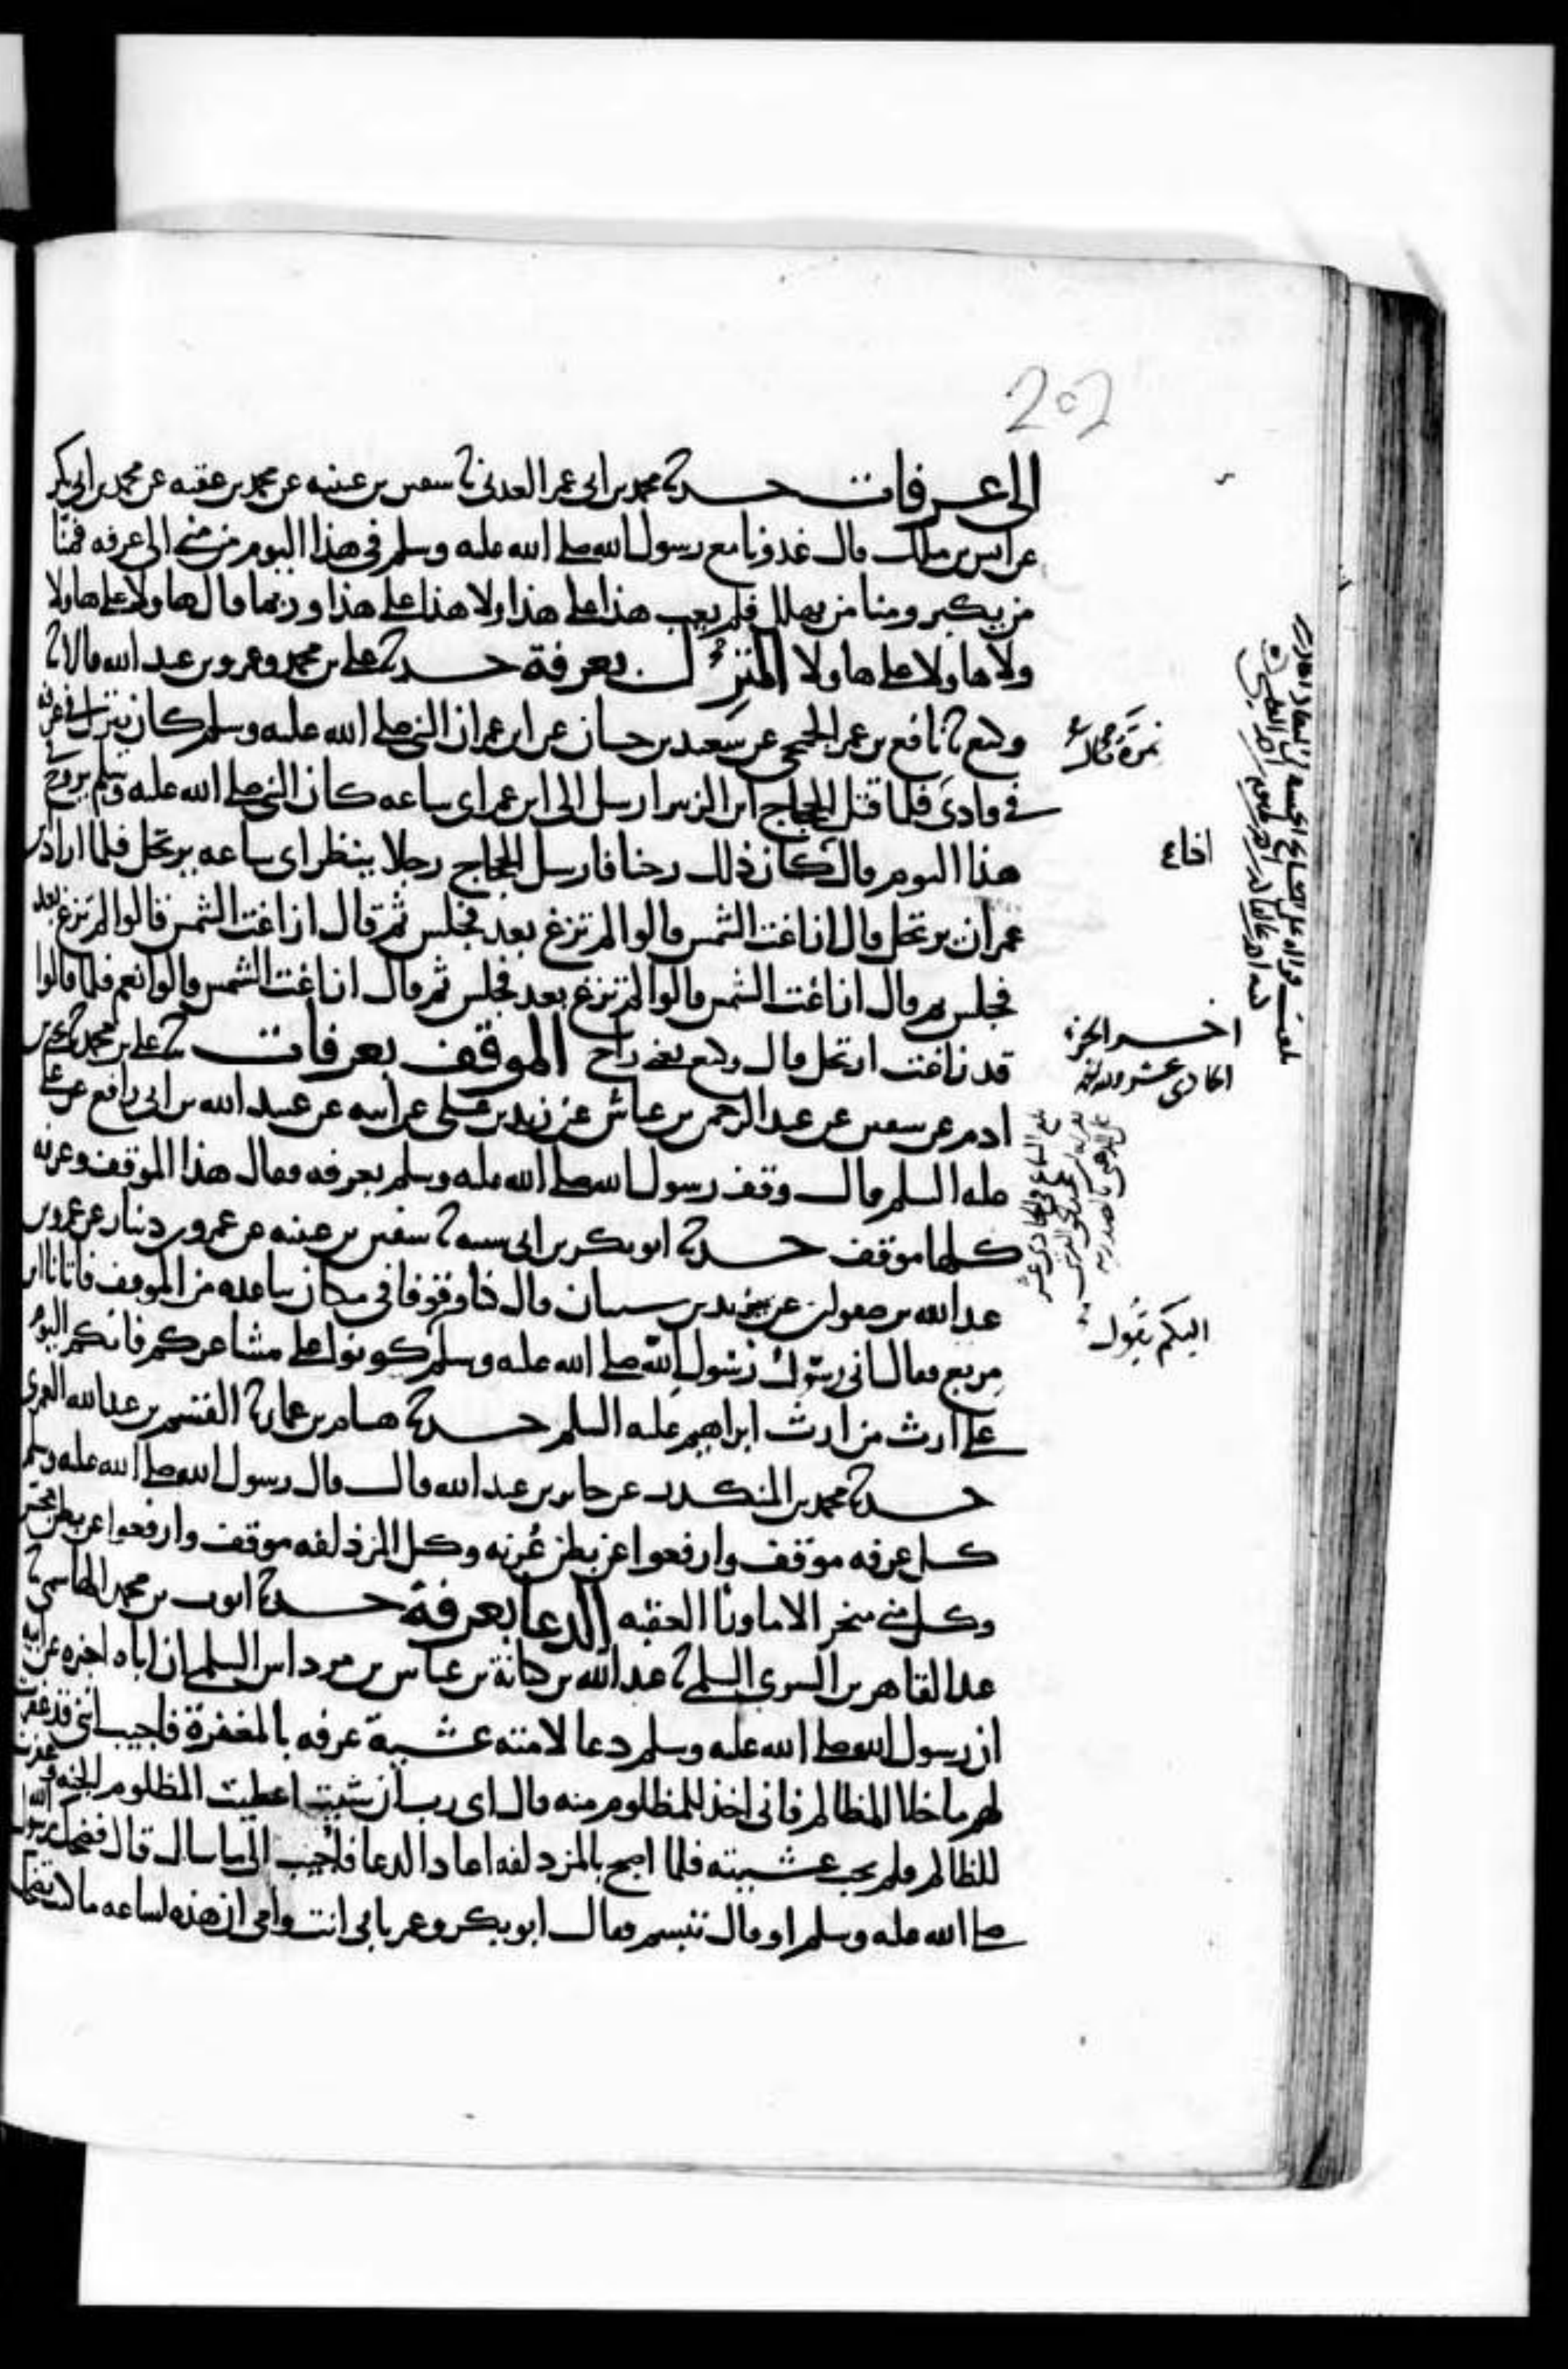 202
الى عرفات حدثنا محمد بن ابى عمر العدنى ثنا سفين بن عيينه عن محمد بن عقبه عن محمد بن ابى بكر
عن انس بن ملك قال غدونا مع رسول الله صلى الله عليه وسلم فى هذا اليوم من منى الى عرفه فمنا
من يكبر ومنا من يهلل فلم يعب هذا على هذا ولا هذا على هذا وربما قال هاولا على هاولا
ولا هاولا على هاولا المنزل بعرفة حدثنا على بن محمد وعمرو بن عبد الله قالا ثنا
وكيع ثنا نافع بن عمر الجمحى عن سعيد بن حسان عن ابن عمر ان النبى صلى الله عليه وسلم كان ينزل فى عرفه
فى وادى فلما قتل الحجاج ابن الزبير ارسل الى ابن عمر اى ساعه كان النبى صلى الله عليه وسلم يروح
هذا اليوم قال كان ذلك رحنا فارسل الحجاج رجلا ينظر اى ساعه يرتحل فلما اراد بن
عمر ان يرتحل قال ازاغت الشمس قالوا لم تزغ بعد فجلس ثم قال ازاغت الشمس قالوا لم تزغ بعد
فجلس ثم قال ازاغت الشمس قالوا لم تزغ بعد فجلس ثم قال ازاغت الشمس قالوا نعم فلما قالوا
قد زاغت ارتحل قال وكيع يعنى راح الموقف بعرفات ثنا على بن محمد ثنا يحى بن
ادم عن سفين عن عبد الرحمن بن عياش عن زيد بن على عن ابيه عن عبيد الله بن ابى رافع عن على
عليه السلم قال وقف رسول الله صلى الله عليه وسلم بعرفه فقال هذا الموقف وعرفه
كلها موقف حدثنا ابو بكر بن ابى شيبه ثنا سفين بن عيينه عن عمرو بن دينار عن عمرو بن
عبد الله بن صفوان عن يزيد بن شيبان قال كنا وقوفا فى مكان تباعده من الموقف فاتانا ابن
مربع فقال انى رسول رسول الله صلى الله عليه وسلم كونوا على مشاعركم فانكم اليوم
على ارث من ارث ابراهيم عليه السلم حدثنا هشام بن عمار ثنا القسم بن عبد الله العمرى
حدثنا محمد بن المنكدر عن جابر بن عبد الله قال قال رسول الله صلى الله عليه وسلم
كل عرفه موقف وارفعوا عن بطن عرنه وكل المزدلفه موقف وارفعوا عن بطن محسر
وكل منى منحر الا ماورا العقبه الدعا بعرفة حدثنا ايوب بن محمد الهاشمى ثنا
عبد القاهر بن السرى السلمى ثنا عبد الله بن كنانة بن عباس بن مرداس السلمى ان اباه اخبره عن ابيه
ان رسول الله صلى الله عليه وسلم دعا لامته عشية عرفه بالمغفرة فاجيب انى قد غفرت
لهم ما خلا المظالم فانى اخذ للمظلوم منه قال اى رب ان شيت اعطيت المظلوم الجنه وغفرت
للظالم فلم يجب عشيته فلما اصبح بالمزدلفه اعاد الدعا فاجيب الى ما سال قال فضحك رسول الله
صلى الله عليه وسلم او قال تبسم فقال ابو بكر وعمر بابى انت وامى ان هذه لساعه ما كنت تضحك
نمرة قال
اخر الجزء
الحادى عشر
اليكم يقول